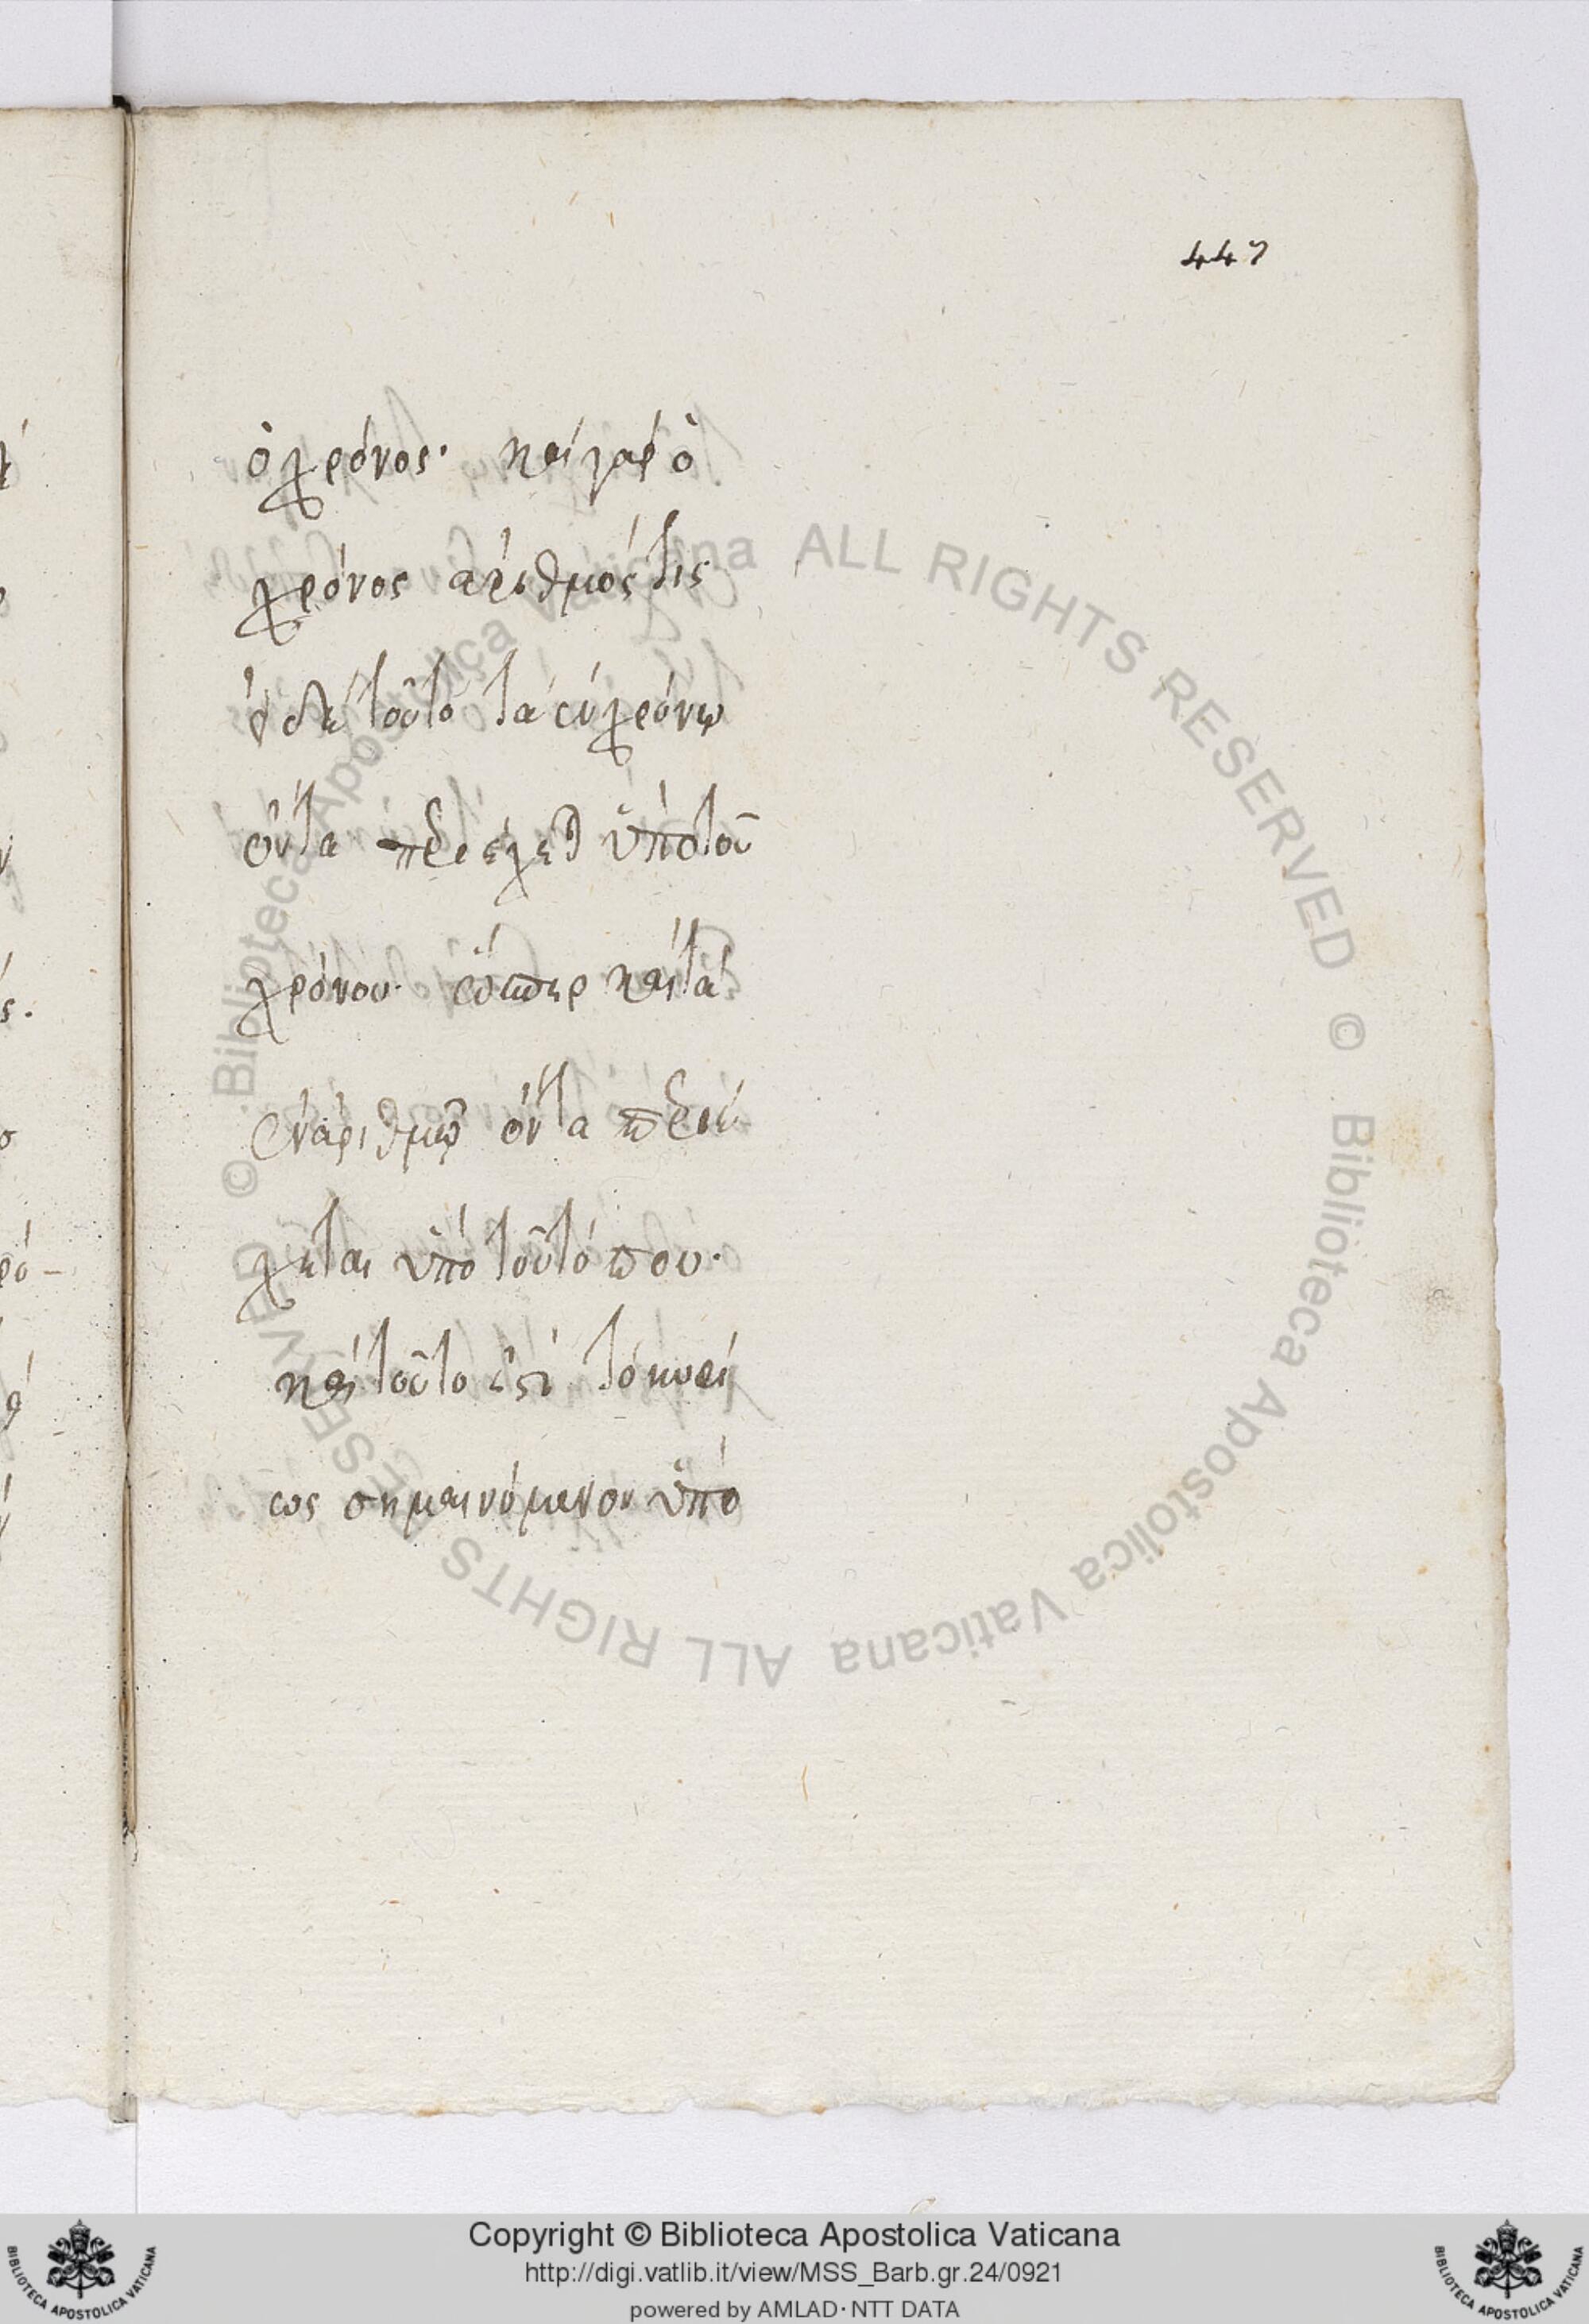 447
ὁ χρόνος· καὶ γὰρ ὁ
χρόνος ἀριθμός τις
διὰ τοῦτο τὰ ἐν χρόνῳ
ὄντα περιέχεται ὑπὸ τοῦ
χρόνου· ὥσπερ καὶ τὰ
ἐν ἀριθμῷ ὄντα περιέ
χεται ὑπὸ τοῦ τόπου·
καὶ τοῦτο ἐστὶ τὸ κυρί
ως σημαινόμενον ὑπὸ
© Biblioteca Apostolica Vaticana ALL RIGHTS RESERVED © Biblioteca Apostolica Vaticana ALL RIGHTS RESERVED
Copyright © Biblioteca Apostolica Vaticana
http://digi.vatlib.it/view/MSS_Barb.gr.24/0921
powered by AMLAD·NTT DATA
BIBLIOTECA APOSTOLICA VATICANA
BIBLIOTECA APOSTOLICA VATICANA